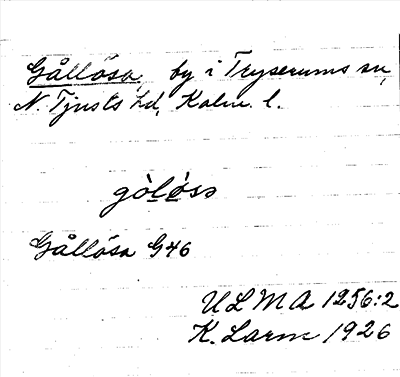 Gållösa, by i Tryserums sn,
N. Tjusts hd, Kalm. l.
gòlòsa
Gållösa G46
ULMA 1256:2
K. Larm 1926